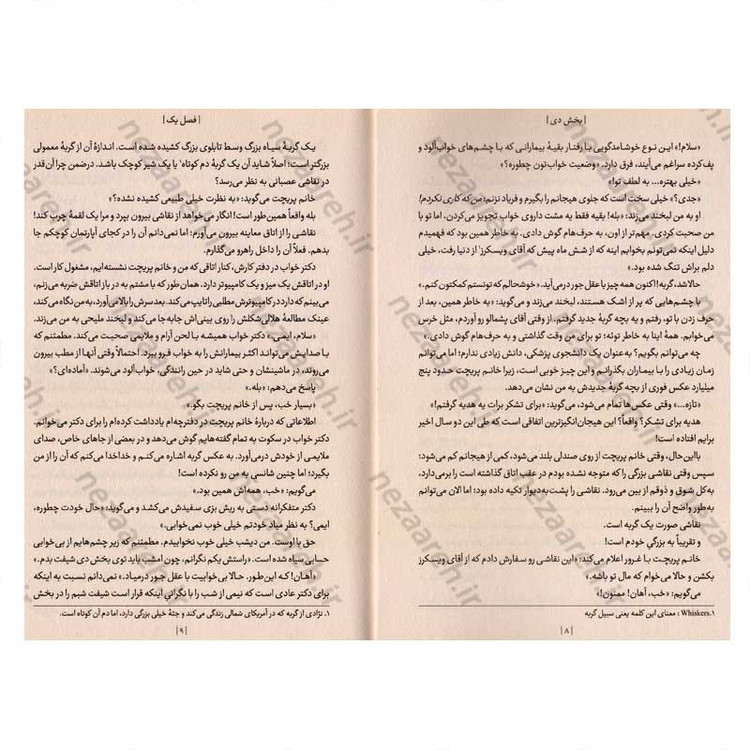 | بخش دی |
«سلام!» این نوع خوشامدگویی با رفتار بقیهٔ بیمارانی که با چشم‌های خواب‌آلود و
پف‌کرده سراغم می‌آیند، فرق دارد. «وضعیت خواب‌تون چطوره؟»
«خیلی بهتره... به لطف تو!»
«جدی؟» خیلی سخت است که جلوی هیجانم را بگیرم و فریاد نزنم: من که کاری نکردم!
او به من لبخند می‌زند: «بله! بقیه فقط یه مشت داروی خواب تجویز می‌کردن، اما تو با
من صحبت کردی. مهم‌تر از اون، به حرف‌های هام گوش دادی. به خاطر همین بود که فهمیدم
دلیل اینکه نمی‌تونم بخوابم اینه که از شش ماه پیش که آقای ویسکرز¹ از دنیا رفت، خیلی
دلم براش تنگ شده بود.»
حالا شد، گربه! اکنون همه چیز با عقل جور درمی‌آید. «خوشحالم که تونستم کمکتون کنم.»
با چشم‌هایی که پر از اشک هستند، لبخند می‌زند و می‌گوید: «به خاطر همین، بعد از
حرف زدن با تو، رفتم و یه بچه گربهٔ جدید گرفتم. از وقتی آقای پشمالو رو آوردم، مثل خرس
می‌خوابم. همهٔ اینا به خاطر توئه؛ تو برای من وقت گذاشتی و به حرف‌هام گوش دادی.»
چه می‌توانم بگویم؟ به‌عنوان یک دانشجوی پزشکی، دانش زیادی ندارم؛ اما می‌توانم
زمان زیادی را با بیماران بگذرانم و این چیز خوبی است، زیرا خانم پریچت حدود پنج
میلیارد عکس فوری از بچه گربهٔ جدیدش به من نشان می‌دهد.
«تازه...» وقتی عکس‌ها تمام می‌شود، می‌گوید: «برای تشکر برات یه هدیه گرفتم!»
هدیه برای تشکر؟ واقعاً؟ این هیجان‌انگیزترین اتفاقی است که طی این دو سال اخیر
برایم افتاده است!
بااین‌حال، وقتی خانم پریچت از روی صندلی بلند می‌شود، کمی از هیجانم کم می‌شود؛
سپس وقتی نقاشی بزرگی را که متوجه نشده بودم در عقب اتاق گذاشته است را برمی‌دارد،
به‌کل شوق و ذوقم از بین می‌رود. نقاشی را پشت‌به‌دیوار تکیه داده بود؛ اما الان می‌توانم
به‌طور واضح آن را ببینم.
نقاشی صورت یک گربه است.
و تقریباً به بزرگی خودم است!
خانم پریچت با غرور اعلام می‌کند: «این نقاشی رو سفارش دادم که از آقای ویسکرز
بکشن و حالا می‌خوام که مال تو باشه.»
می‌گویم: «خب، آهان! ممنون!»
۱. Whiskers : معنای این کلمه یعنی سبیل گربه
| ۸ |
| فصل یک |
یک گربهٔ سیاه بزرگ وسط تابلوی بزرگ کشیده شده است. اندازهٔ آن از گربهٔ معمولی
بزرگتر است؛ اصلاً شاید آن یک گربهٔ دم کوتاه¹ یا یک شیر کوچک باشد. درضمن چرا آن‌قدر
در نقاشی عصبانی به نظر می‌رسد؟
خانم پریچت می‌گوید: «به نظرت خیلی طبیعی کشیده نشده؟»
بله واقعاً همین‌طور است! انگار می‌خواهد از نقاشی بیرون بپرد و مرا یک لقمهٔ چرب کند!
نقاشی را از اتاق معاینه بیرون می‌آورم؛ اما نمی‌دانم آن را در کجای آپارتمان کوچکم جا
بدهم. فعلاً آن را داخل راهرو می‌گذارم.
دکتر خواب در دفتر کارش، کنار اتاقی که من و خانم پریچت نشسته‌ایم، مشغول کار است.
او در اتاقش یک میز و یک کامپیوتر دارد. همان‌طور که با مشتم به در باز اتاقش ضربه می‌زنم،
می‌بینم که دارد در کامپیوترش مطلبی را تایپ می‌کند. بعد سرش را بالا می‌آورد، به من نگاه می‌کند،
عینک مطالعهٔ هلالی‌شکلش را روی بینی‌اش جابه‌جا می‌کند و لبخند ملیحی به من می‌زند.
«سلام، ایمی.» دکتر خواب همیشه با لحن آرام و ملایمی صحبت می‌کند. مطمئنم که
با صدایش می‌تواند اکثر بیمارانش را به خواب فرو ببرد. احتمالاً وقتی آنها از مطب بیرون
می‌روند، در ماشینشان و حتی شاید در حین رانندگی، خواب‌آلود می‌شوند. «آماده‌ای؟»
پاسخ می‌دهم: «بله.»
«بسیار خب، پس از خانم پریچت بگو.»
اطلاعاتی که دربارهٔ خانم پریچت در دفترچه‌ام یادداشت کرده‌ام را برای دکتر می‌خوانم.
دکتر خواب در سکوت به تمام گفته‌هایم گوش می‌دهد و در بعضی از جاهای خاص، صدای
ملایمی از خودش درمی‌آورد. به عکس گربه اشاره می‌کنم و خداخدا می‌کنم که آن را از من
بگیرد؛ اما چنین شانسی به من رو نکرده است!
می‌گویم: «خب، همه‌اش همین بود.»
دکتر متفکرانه دستی به ریش بزی سفیدش می‌کشد و می‌گوید: «حال خودت چطوره،
ایمی؟ به نظر میاد خودتم خیلی خوب نمی‌خوابی.»
حق با اوست. من دیشب خیلی خوب نخوابیدم. مطمئنم که زیر چشم‌هایم از بی‌خوابی
حسابی سیاه شده است. «راستش یکم نگرانم، چون امشب باید توی بخش دی شیفت بدم.»
«آهان! که این‌طور. حالا بی‌خوابیت با عقل جور درمیاد.» نمی‌دانم نسبت به اینکه
برای دکتر عادی است که نیمی از شب را با نگرانی اینکه قرار است شیفت شبم را در بخش
۱. نژادی از گربه که در آمریکای شمالی زندگی می‌کند و جثهٔ خیلی بزرگی دارد، اما دم آن کوتاه است.
| ۹ |
nezaareh.ir